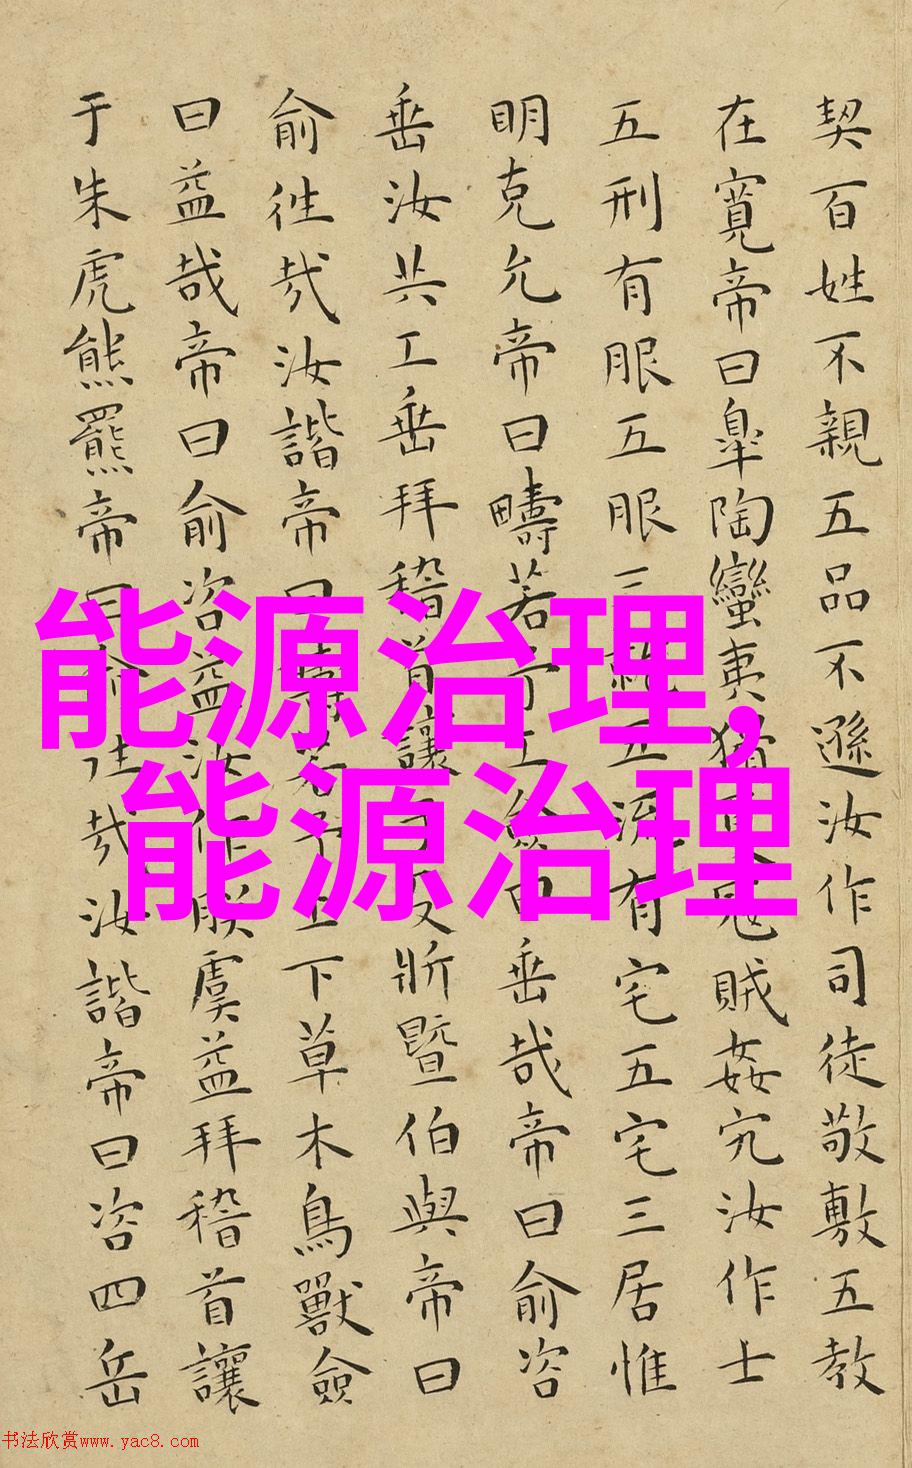 契百姓不親五品不遜汝作司徒敬敷五教
在寬帝曰皐陶蠻夷猾夏寇賊姦宄汝作士
五刑有服五服三就五流有宅五宅三居惟
明克允帝曰疇若予工僉曰垂哉帝曰俞咨
垂汝共工垂拜稽首讓于殳斨暨伯與帝曰
俞往哉汝諧帝曰疇若予上下草木鳥獸僉
曰益哉帝曰俞咨益汝作朕虞益拜稽首讓
于朱虎熊羆帝曰俞往哉汝諧帝曰咨四岳
能源治理,
能源治理
书法欣赏www.yac8.com